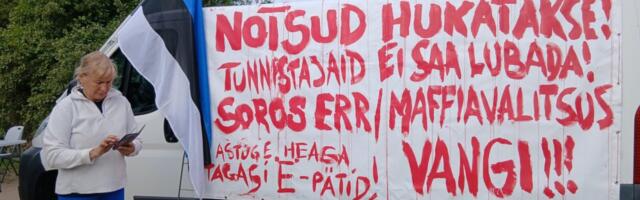 NOTSUD HUKATAKSE!
TUNNISTAJAID EI SAA LUBADA!
SOROS ERR/MAFFIAVALITSUS
ASTUGE HEAGA
TAGASI E-PÄTID!
VANGI!!!